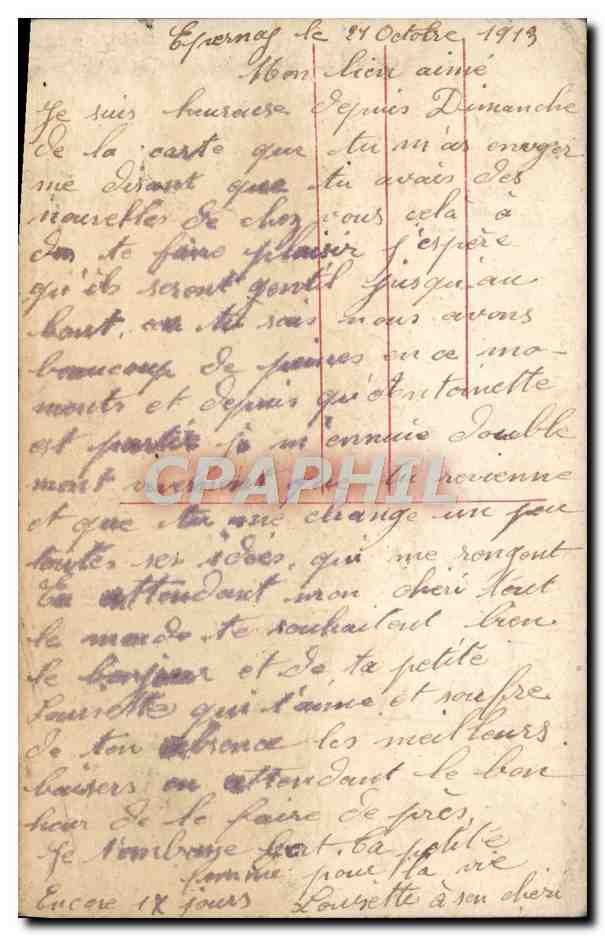 Epernay le 21 Octobre 1913
Mon bien aimé
Je suis heureuse depuis Dimanche
de la carte que tu m'as envoyer
me disant que tu avais des
nouvelles de chez vous celà à
du te faire plaisir j'espère
qu'ils seront gentil jusqu'au
bout, car tu sais nous avons
beaucoup de peines en ce mo-
ments et depuis qu'Antoinette
est partie je m'ennuie double
ment vivement que tu revienne
et que tu me change un peu
toutes ses idées, qui me rongent
En attendant mon chéri tout
le monde te souhaitent bien
le bonjour et de ta petite
Lousette qui t'aime et soufre
de ton absence les meilleurs
baisers en attendant le bon
heur de le faire de près,
Je t'embrasse fort. ta petite
femme pour la vie
Encore 17 jours Lousette à son chéri
CPAPHIL